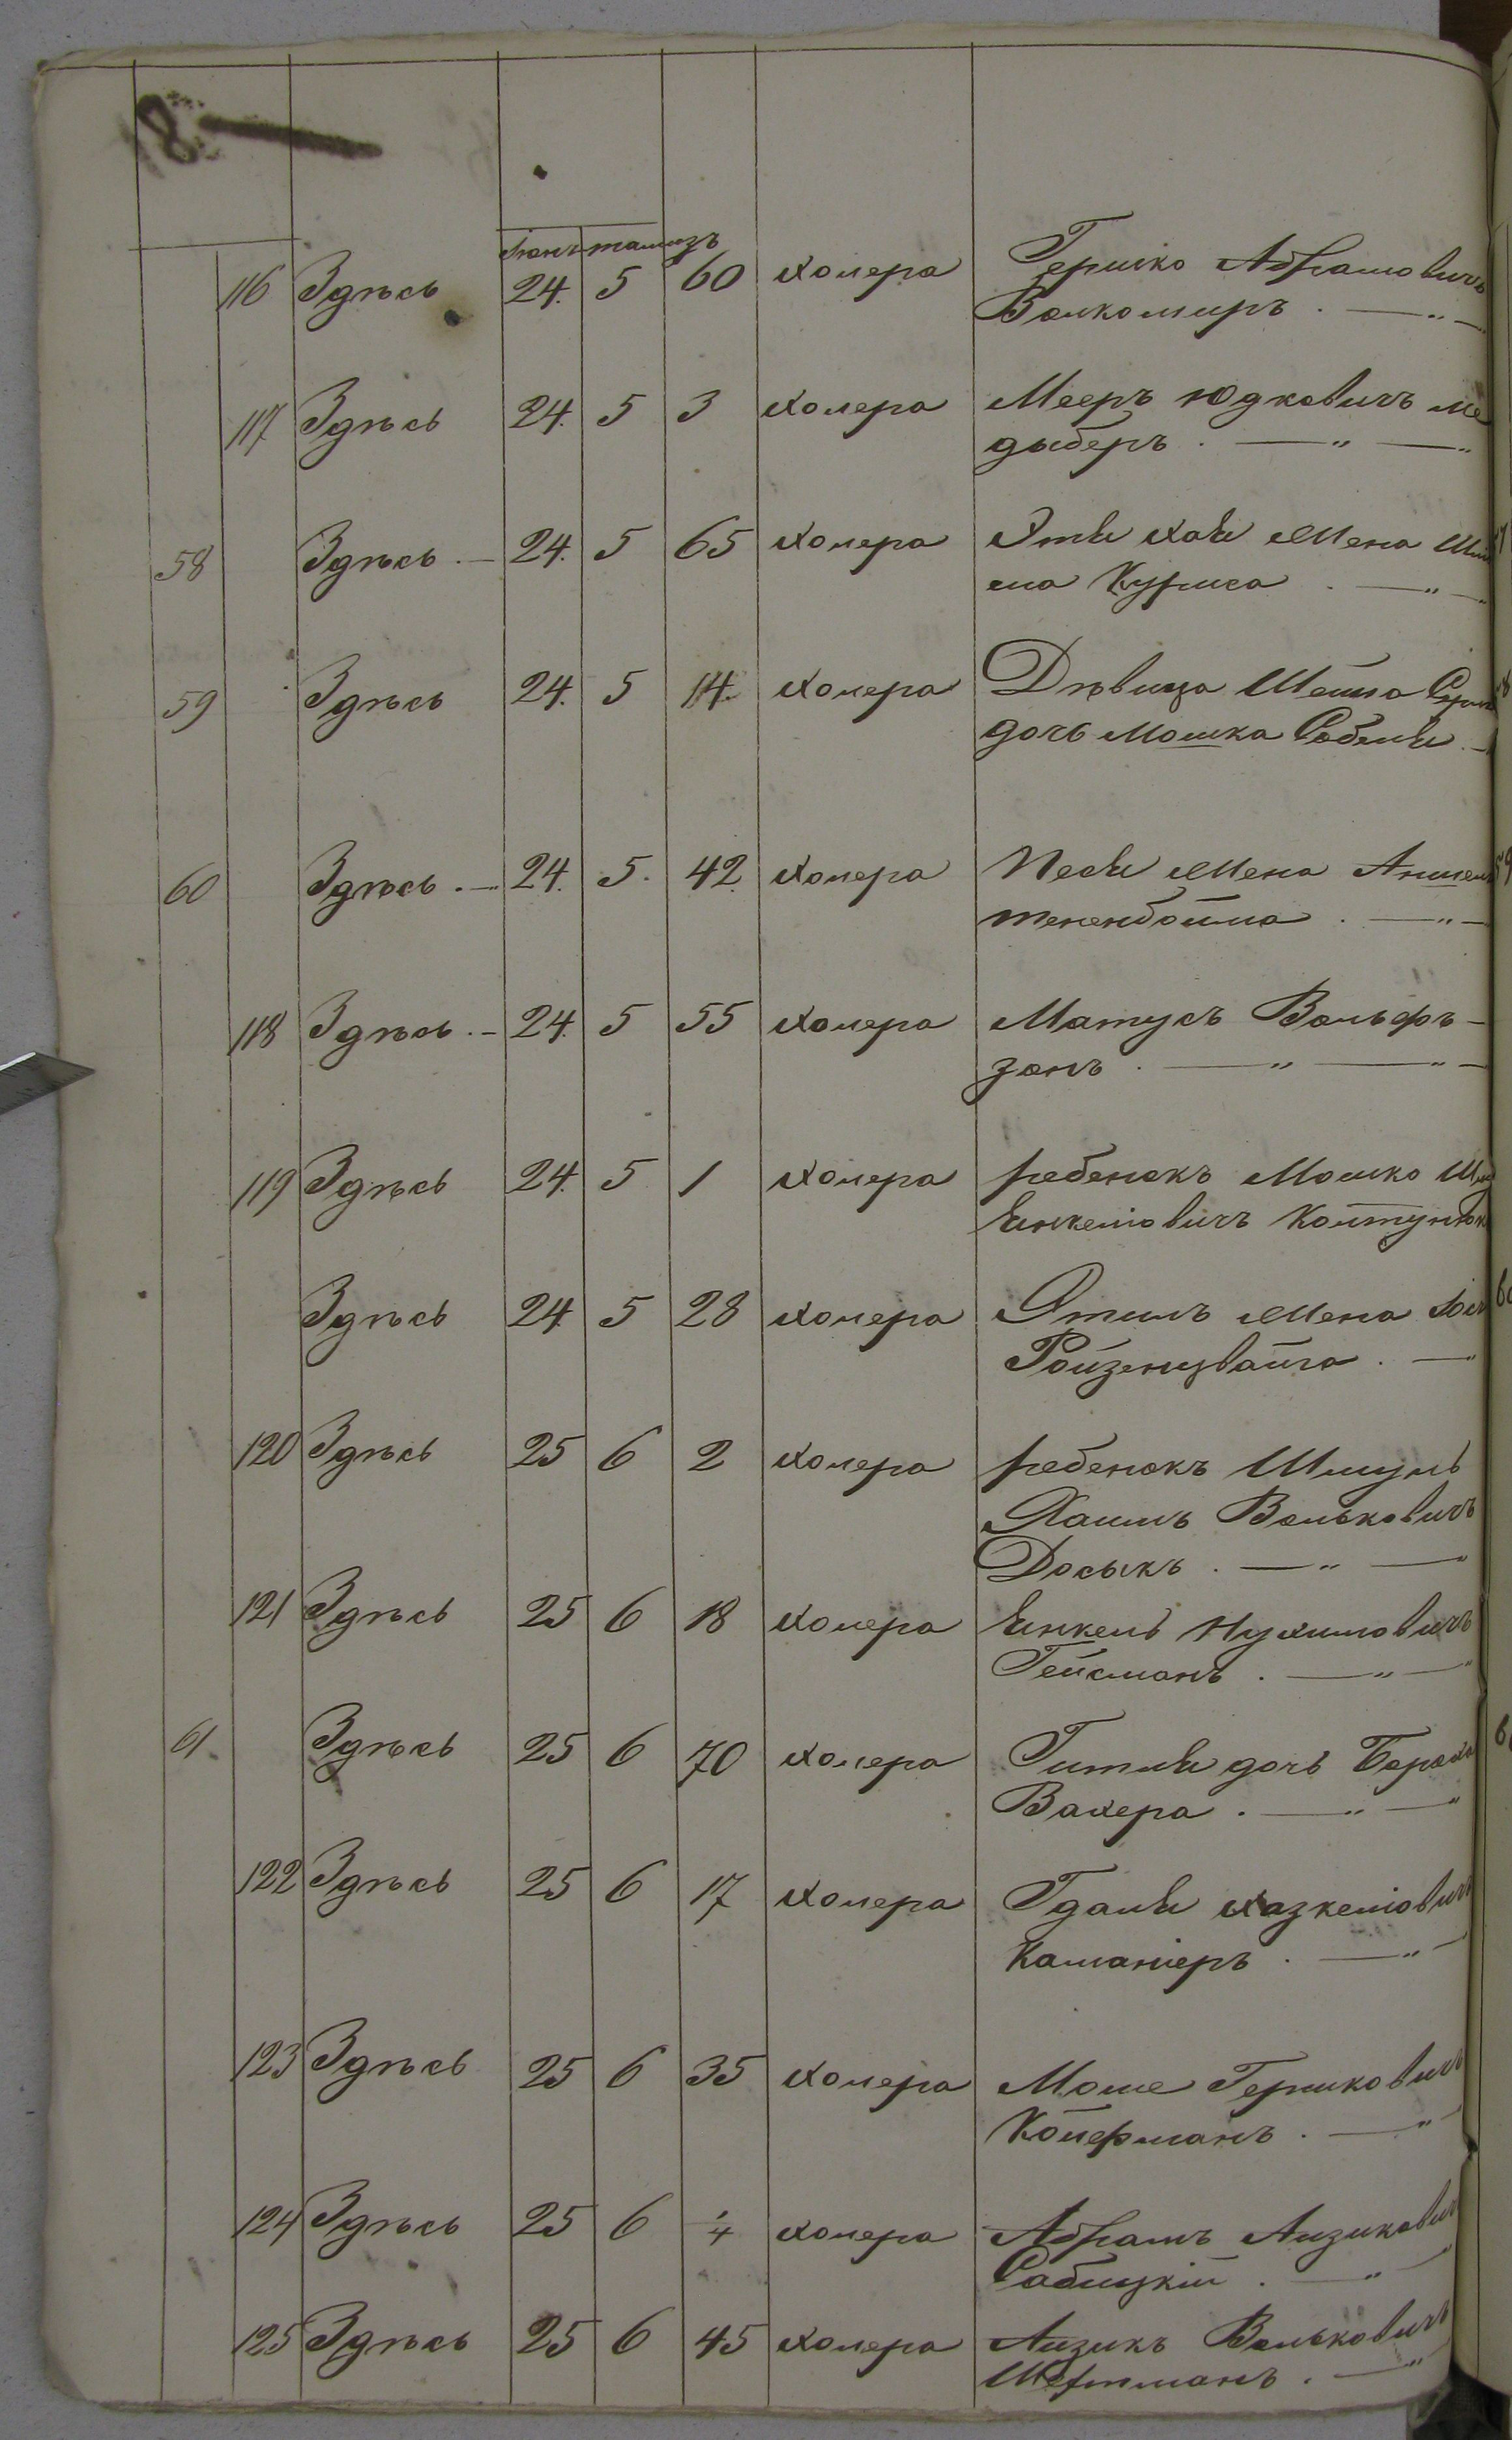 18
Іюнь тамизъ
116 Здѣсь 24. 5 60 холера Гершко Абрамовичъ
Волкомиръ . — „ —
117 Здѣсь 24. 5 3 холера Мееръ Юдковичъ ме
дыберъ . — „ —
58 Здѣсь . — 24. 5 65 холера Эти Хаи Жена
Курица . — „ —
59 Здѣсь 24. 5 14. холера Дѣвица Шейна
дочь Мошка
60 Здѣсь . — 24. 5. 42 холера Песи Жена
тененбойма . — „ —
118 Здѣсь . — 24. 5 55 холера Матусъ Вольфъ —
зонъ . — „ — „ —
119 Здѣсь 24. 5 1 холера ребенокъ Мошко
Янкеліовичъ
Здѣсь 24. 5 28 холера Этиль Жена
Ройзенцвайга . — „
120 Здѣсь 25 6 2 холера ребенокъ Шмуль
Хаимъ Вольковичъ
Досыкъ . — „ — „
121 Здѣсь 25 6 18 холера Янкель Нухимовичъ
Гейсманъ . — „ — „
61. Здѣсь 25 6 70 холера Гитли дочь
Вахера . — „ — „
122 Здѣсь 25 6 17 холера Гдали Хазкеліовичъ
Каманіеръ . — „
123 Здѣсь 25 6 35 холера Моше Гершковичъ
Койфманъ . — „
124 Здѣсь 25 6 1/4 холера Абрамъ Аизиковичъ
Саблуцкій . — „
125 Здѣсь 25 6 45 холера Аизикъ Вольковичъ
. — „